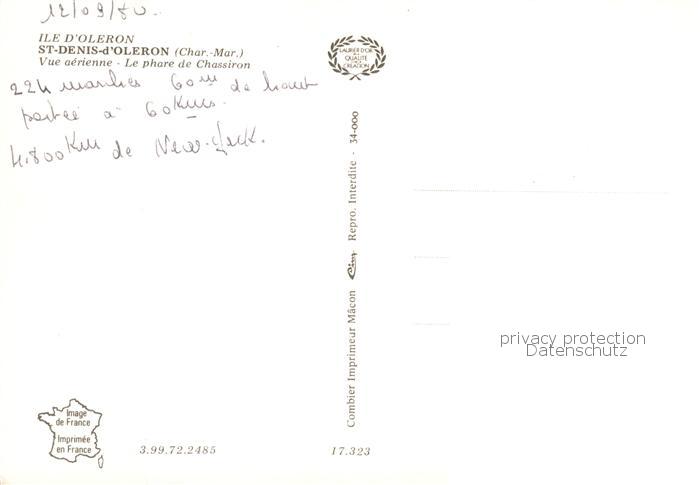 12/09/80.
ILE D'OLERON
ST-DENIS-d'OLERON (Char.-Mar.)
Vue aérienne - Le phare de Chassiron
224 marches 60m de haut
portée à 60 Kms.
4.800 Km de New-York.
LAURIER D'OR
DE LA
QUALITÉ
DE LA
CRÉATION
Combier Imprimeur Mâcon Cim Repro. Interdite - 34-000
privacy protection
Datenschutz
Image
de France
Imprimée
en France
3.99.72.2485
17.323